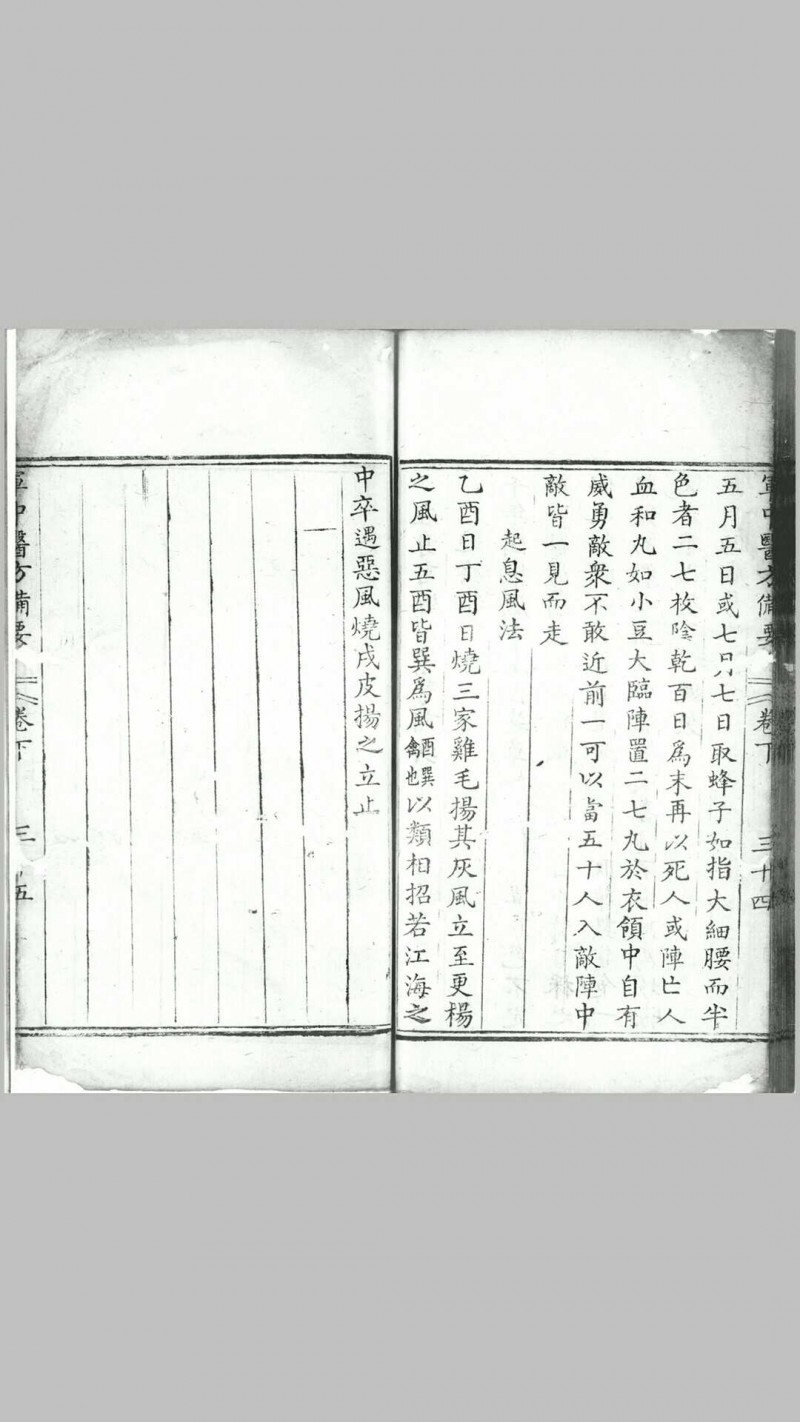 軍中醫方備要 卷下 三十四
五月五日或七月七日取蜂子如指大細腰而半
色者二七枚陰乾百日為末再以死人或陣亡人
血和丸如小豆大臨陣置二七丸於衣領中自有
威勇敵衆不敢近前一可以當五十人入敵陣中
敵皆一見而走
起息風法
乙酉日丁酉日燒三家雞毛揚其灰風立至更楊
之風止五酉皆巽為風酉巽禽也以類相招若江海之
中卒遇惡風燒戌皮揚之立止
軍中醫方備要 卷下 三 五